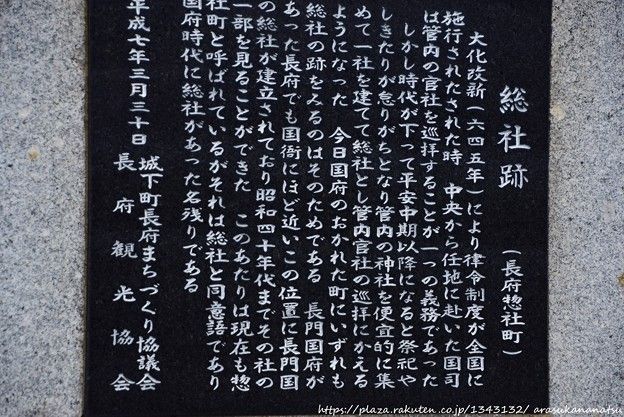 総社跡
(長府惣社町)
大化改新(六四五年)により律令制度が全国に
施行されたされた時 中央から任地に赴いた国司
は管内の官社を巡拝することが一つの義務であった
しかし時代が下って平安中期以降になると祭祀や
しきたりが怠りがちとなり管内の神社を便宜的に集
めて一社を建てて総社とし管内官社の巡拝にかえる
ようになった 今日国府のおかれた町にいずれも
総社の跡をみるのはそのためである 長門国府が
あった長府でも国衙にほど近いこの位置に長門国
の総社が建立されており昭和四十年代までその社の
一部を見ることができた このあたりは現在も惣
社町と呼ばれているがそれは総社と同意語であり
国府時代に総社があった名残りである
平成七年三月三十日
城下町長府まちづくり協議会
長府観光協会
https://plaza.rakuten.co.jp/1343132/ arasukananatsu